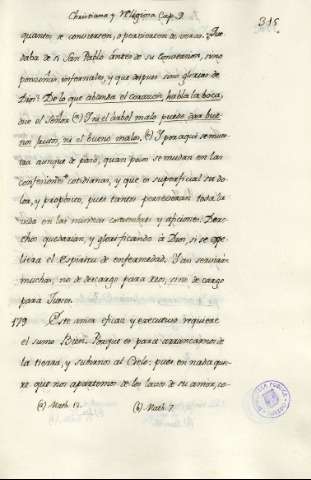 Christiana y Religiosa Cap. 9.
315
quantos se convirtieron, o parecieron de veras.
daba de si San Pablo antes de su Conversion, sino
ponzoñas infernales, y que despues sino glorias de
Dios? De lo que abunda el corazon, habla la boca,
dice el Señor (a) Ni el árbol malo puede dar bue-
nos frutos, ni el bueno malos. (b) Y por aqui se mues-
tra aunque de paso, quan pocos se mudan en las
confesiones cotidianas, y que es superficial su do-
lor, y proposito, pues tantos perseveran toda la
vida en las mismas costumbres y aficiones. Dere-
chos quedarian, y glorificando à Dios, si se
el Espiritu de enfermedad. Y aun servirán
muchas, no de descargo para reos, sino de cargo
para Jueces.
179 Este amor eficaz y executivo requiere
el sumo Bien. Porque es para arrancarnos de
la tierra, y subirnos al Cielo: pues en nada quie-
re que nos apartemos de los lazos de su amor, co-
(a) Math. 12.
(b) Math. 7.